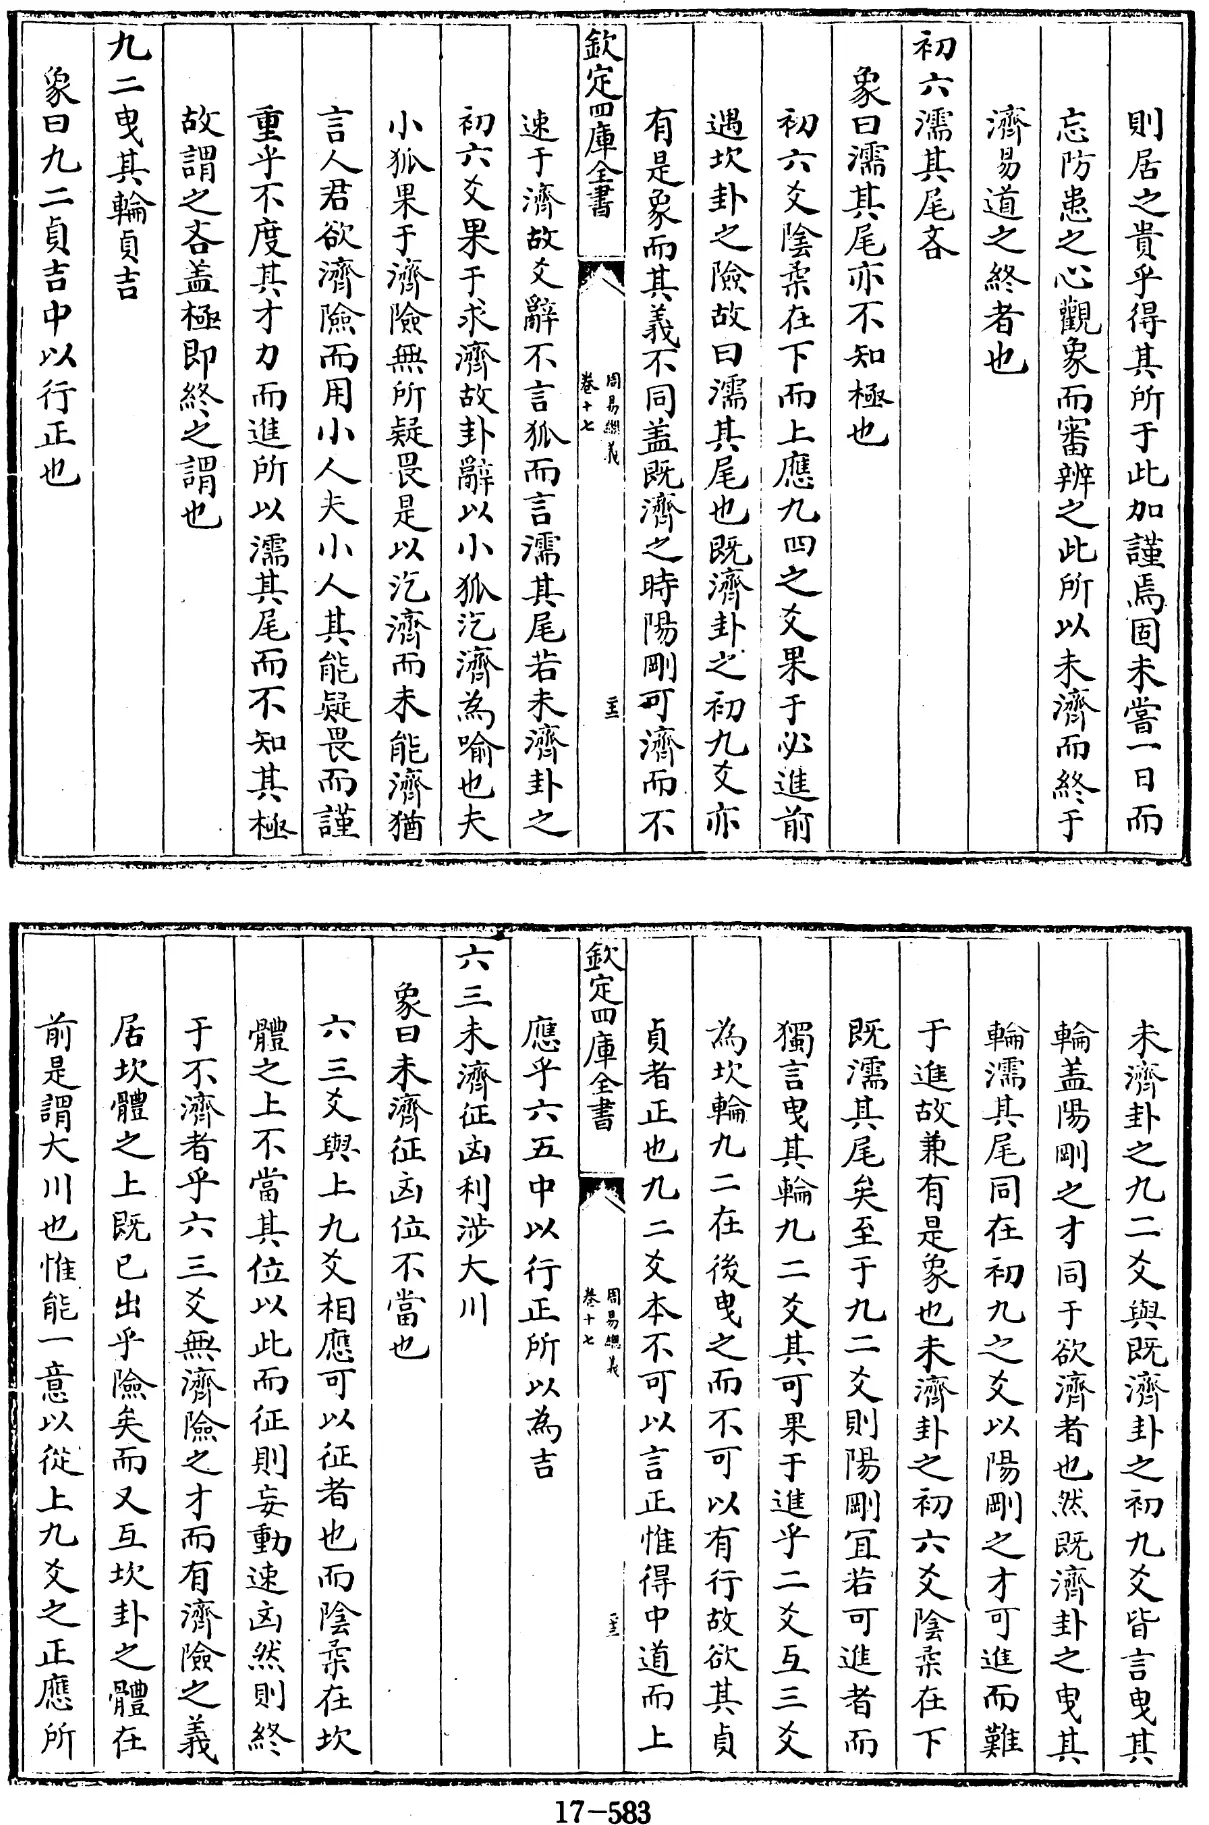 則居之貴乎得其所于此加謹焉固未嘗一日而
忘防患之心觀象而審辨之此所以未濟而終于
濟易道之終者也
初六濡其尾吝
象曰濡其尾亦不知極也
初六爻陰柔在下而上應九四之爻果于必進前
遇坎卦之險故曰濡其尾也既濟卦之初九爻亦
有是象而其義不同蓋既濟之時陽剛可濟而不
欽定四庫全書
周易總義
卷十七
速于濟故爻辭不言狐而言濡其尾若未濟卦之
初六爻果于求濟故卦辭以小狐汔濟為喻也夫
小狐果于濟險無所疑畏是以汔濟而未能濟猶
言人君欲濟險而用小人夫小人其能疑畏而謹
重乎不度其才力而進所以濡其尾而不知其極
故謂之吝蓋極即終之謂也
九二曳其輪貞吉
象曰九二貞吉中以行正也
未濟卦之九二爻與既濟卦之初九爻皆言曳其
輪蓋陽剛之才同于欲濟者也然既濟卦之曳其
輪濡其尾同在初九之爻以陽剛之才可進而難
于進故兼有是象也未濟卦之初六爻陰柔在下
既濡其尾矣至于九二爻則陽剛宜若可進者而
獨言曳其輪九二爻其可果于進乎二爻互三爻
為坎輪九二在後曳之而不可以有行故欲其貞
貞者正也九二爻本不可以言正惟得中道而上
欽定四庫全書
周易總義
卷十七
應乎六五中以行正所以為吉
六三未濟征凶利涉大川
象曰未濟征凶位不當也
六三爻與上九爻相應可以征者也而陰柔在坎
體之上不當其位以此而征則妄動速凶然則終
于不濟者乎六三爻無濟險之才而有濟險之義
居坎體之上既已出乎險矣而又互坎卦之體在
前是謂大川也惟能一意以從上九爻之正應所
17-583